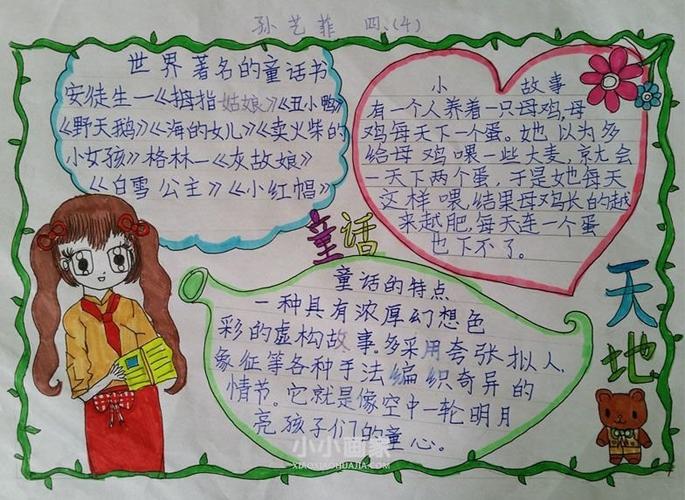 孙艺菲 四.(4)
世界著名的童话书
安徒生—《拇指姑娘》《丑小鸭》
《野天鹅》《海的女儿》《卖火柴的
小女孩》格林—《灰故娘》
《白雪公主》《小红帽》
小 故事
有一个人养着一只母鸡,母
鸡每天下一个蛋。她以为多
给母鸡喂一些大麦,就会
一天下两个蛋,于是她每天
这样喂,结果母鸡长的越
来越肥,每天连一个蛋
也下不了。
童话
童话的特点
一种具有浓厚幻想色
彩的虚构故事。多采用夸张拟人.
象征等各种手法编织奇异的
情节。它就是像空中一轮明月
亮孩子们的童心。
天地
小小画家
XIAOXIAOHUAJIA.COM